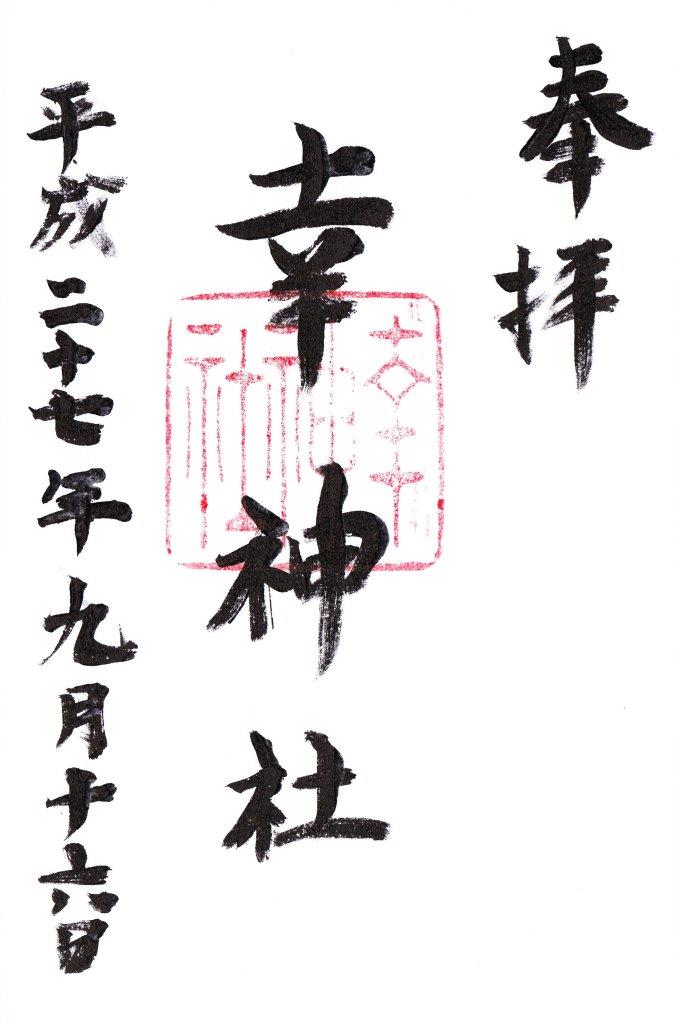 奉拝
幸神社
幸神社
平成二十七年九月十六日